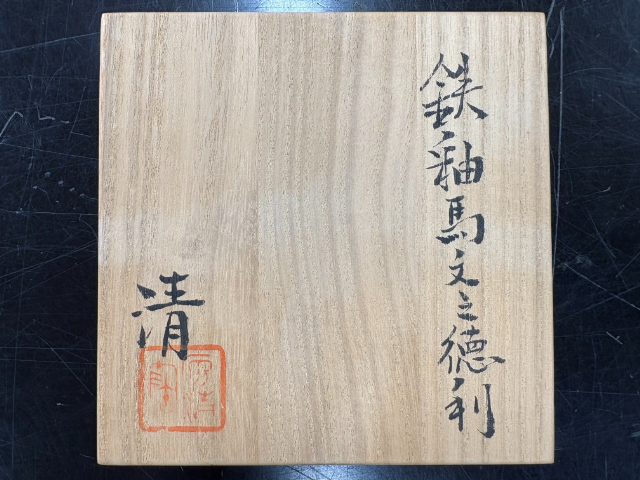 鉄釉馬文之徳利
清